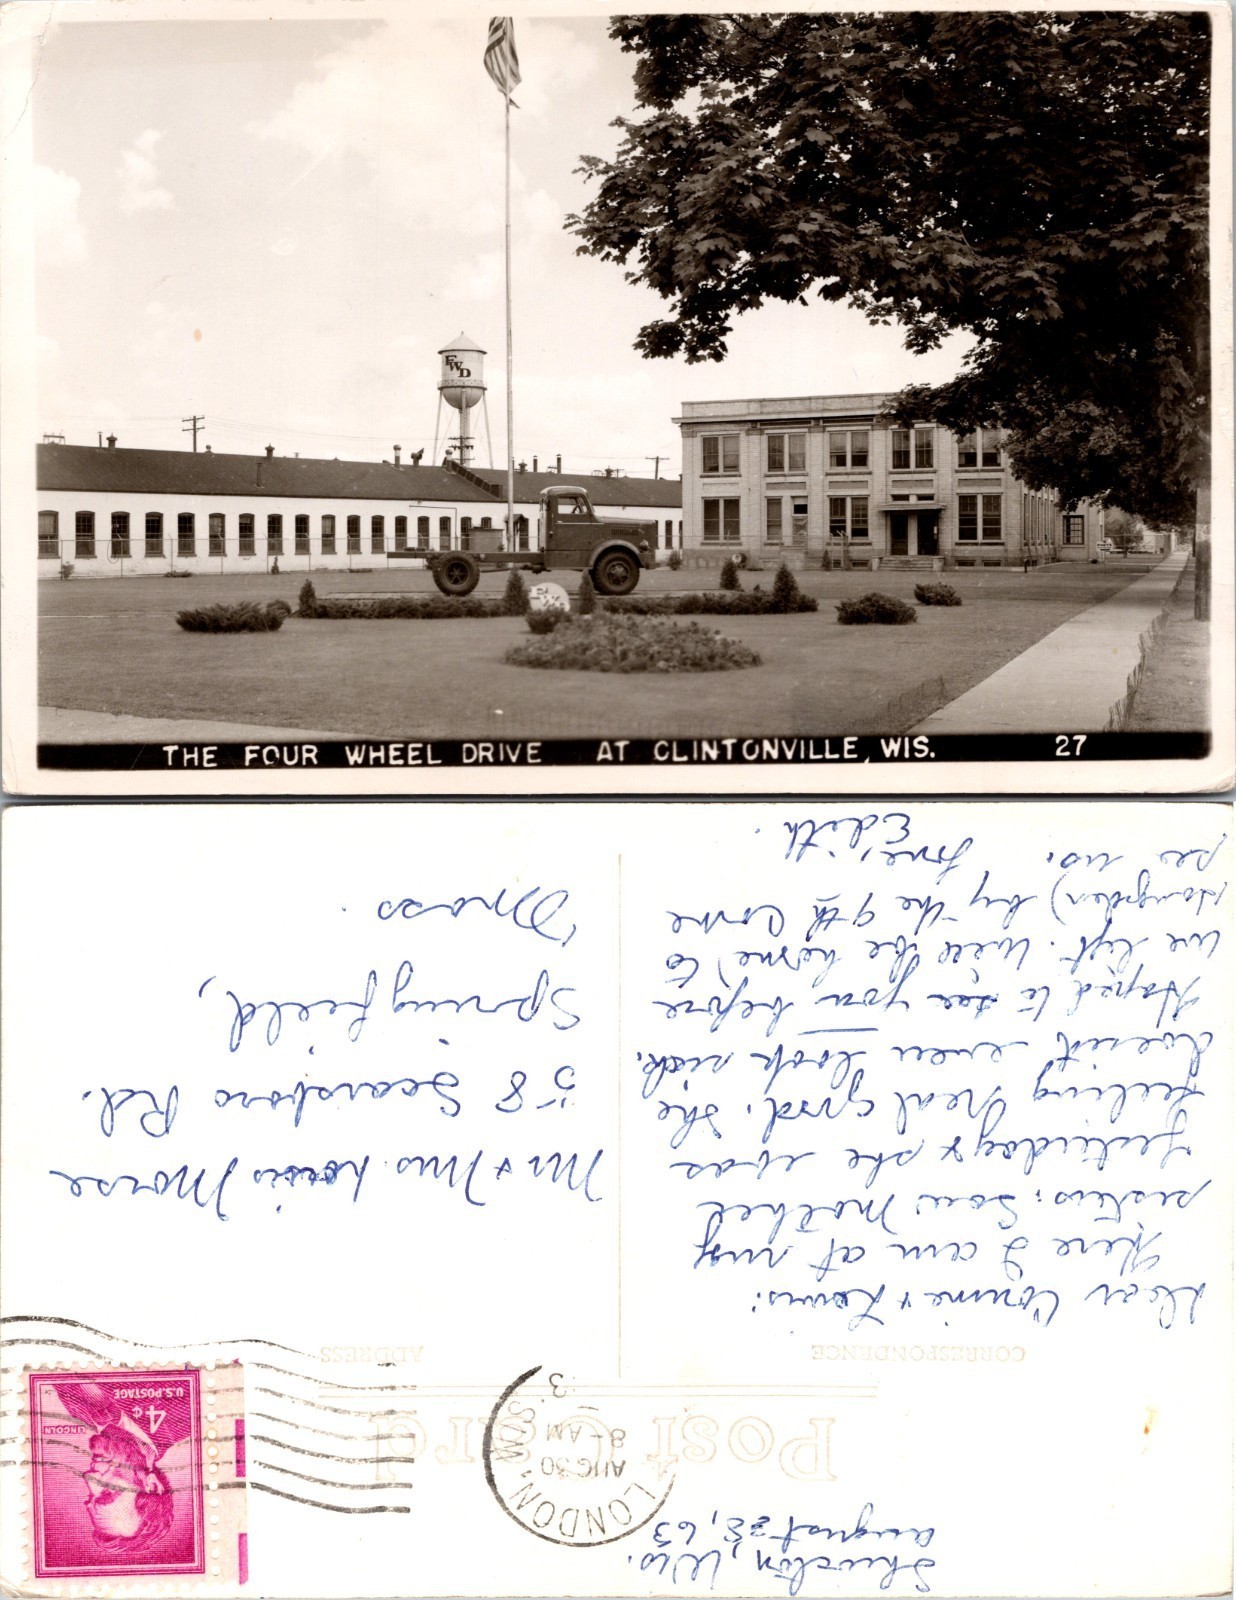 FWD
THE FOUR WHEEL DRIVE AT CLINTONVILLE, WIS. 27
August 28, 63
LONDON, WIS.
AUG 30
8 - AM
Post Card
U.S. POSTAGE
4¢
LINCOLN
CORRESPONDENCE
ADDRESS
Dear Connie & Louis:
Here I am at my
sisters. Saw Mother
yesterday & she was
feeling real good. She
doesn't even look sick.
Hoped to see you before
we left. Will be home, to
Hampden) by the 9th Come
see us.
Love,
Edith.
Mr & Mrs. Louis Morse
58 Scarsboro Rd.
Springfield,
Mass.